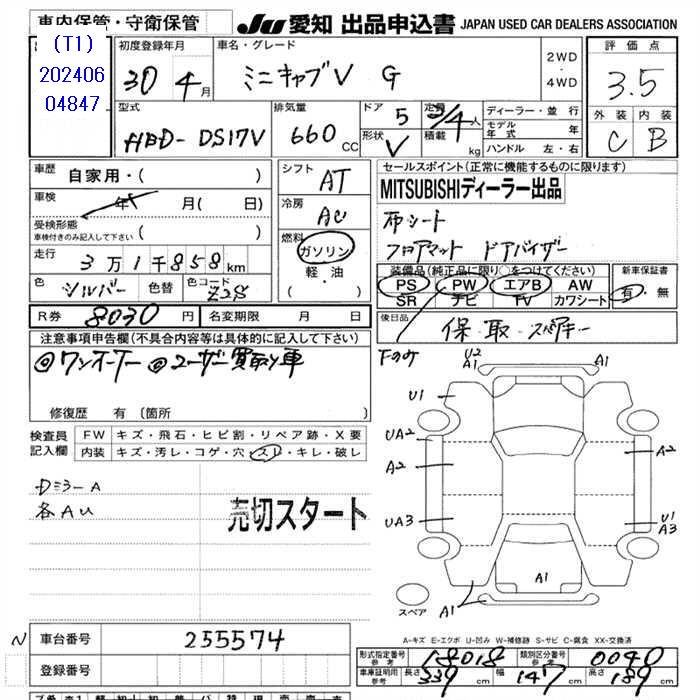 車内保管・守衛保管
JU 愛知 出品申込書 JAPAN USED CAR DEALERS ASSOCIATION
(T1)
202406
04847
初度登録年月
30 4月
車名・グレード
ミニキャブV G
2WD
・
4WD
評価点
3.5
外装 内装
C B
型式
HBD-DS17V
排気量
660 CC
ドア 5
形状 V
定員 /4人
積載 kg
ディーラー・並行
モデル年式 年
ハンドル 左・右
車歴
自家用・( )
車検
年 月( 日)
受検形態
車検付きのみ記入して下さい
走行
3万1千858km
色 シルバー 色替 色コード Z28
シフト AT
冷房 AC
燃料
ガソリン
・
軽・油
( )
セールスポイント(正常に機能するものに限ります)
MITSUBISHIディーラー出品
布シート
フロアマット ドアバイザー
装備品(純正品に限り○をつけてください)
PS PW エアB AW
SR ナビ TV カワシート
新車保証書
有・無
R券 8030円 名変期限 月 日
後日品
保・取・スペアキー
注意事項申告欄(不具合内容等は具体的に記入して下さい)
◎ワンオーナー ◎ユーザー買取り車
修復歴 有(箇所 )
検査員
記入欄
FW キズ・飛石・ヒビ割・リペア跡・X要
内装 キズ・汚レ・コゲ・穴・スレ・キレ・破レ
DミラーA
各AU
売切スタート
Fのみ
U2
A1
A1
U1
UA2
A2
A2
UA3
U1
A3
A1
A1
スペア
A-キズ E-エクボ U-凹み W-補修跡 S-サビ C-腐食 XX-交換済
N
車台番号 255574
登録番号
形式指定番号
参考
18018
類別区分番号
参考
0040
車庫証明用
参考
長さ 339cm 幅 147cm 高さ 189cm